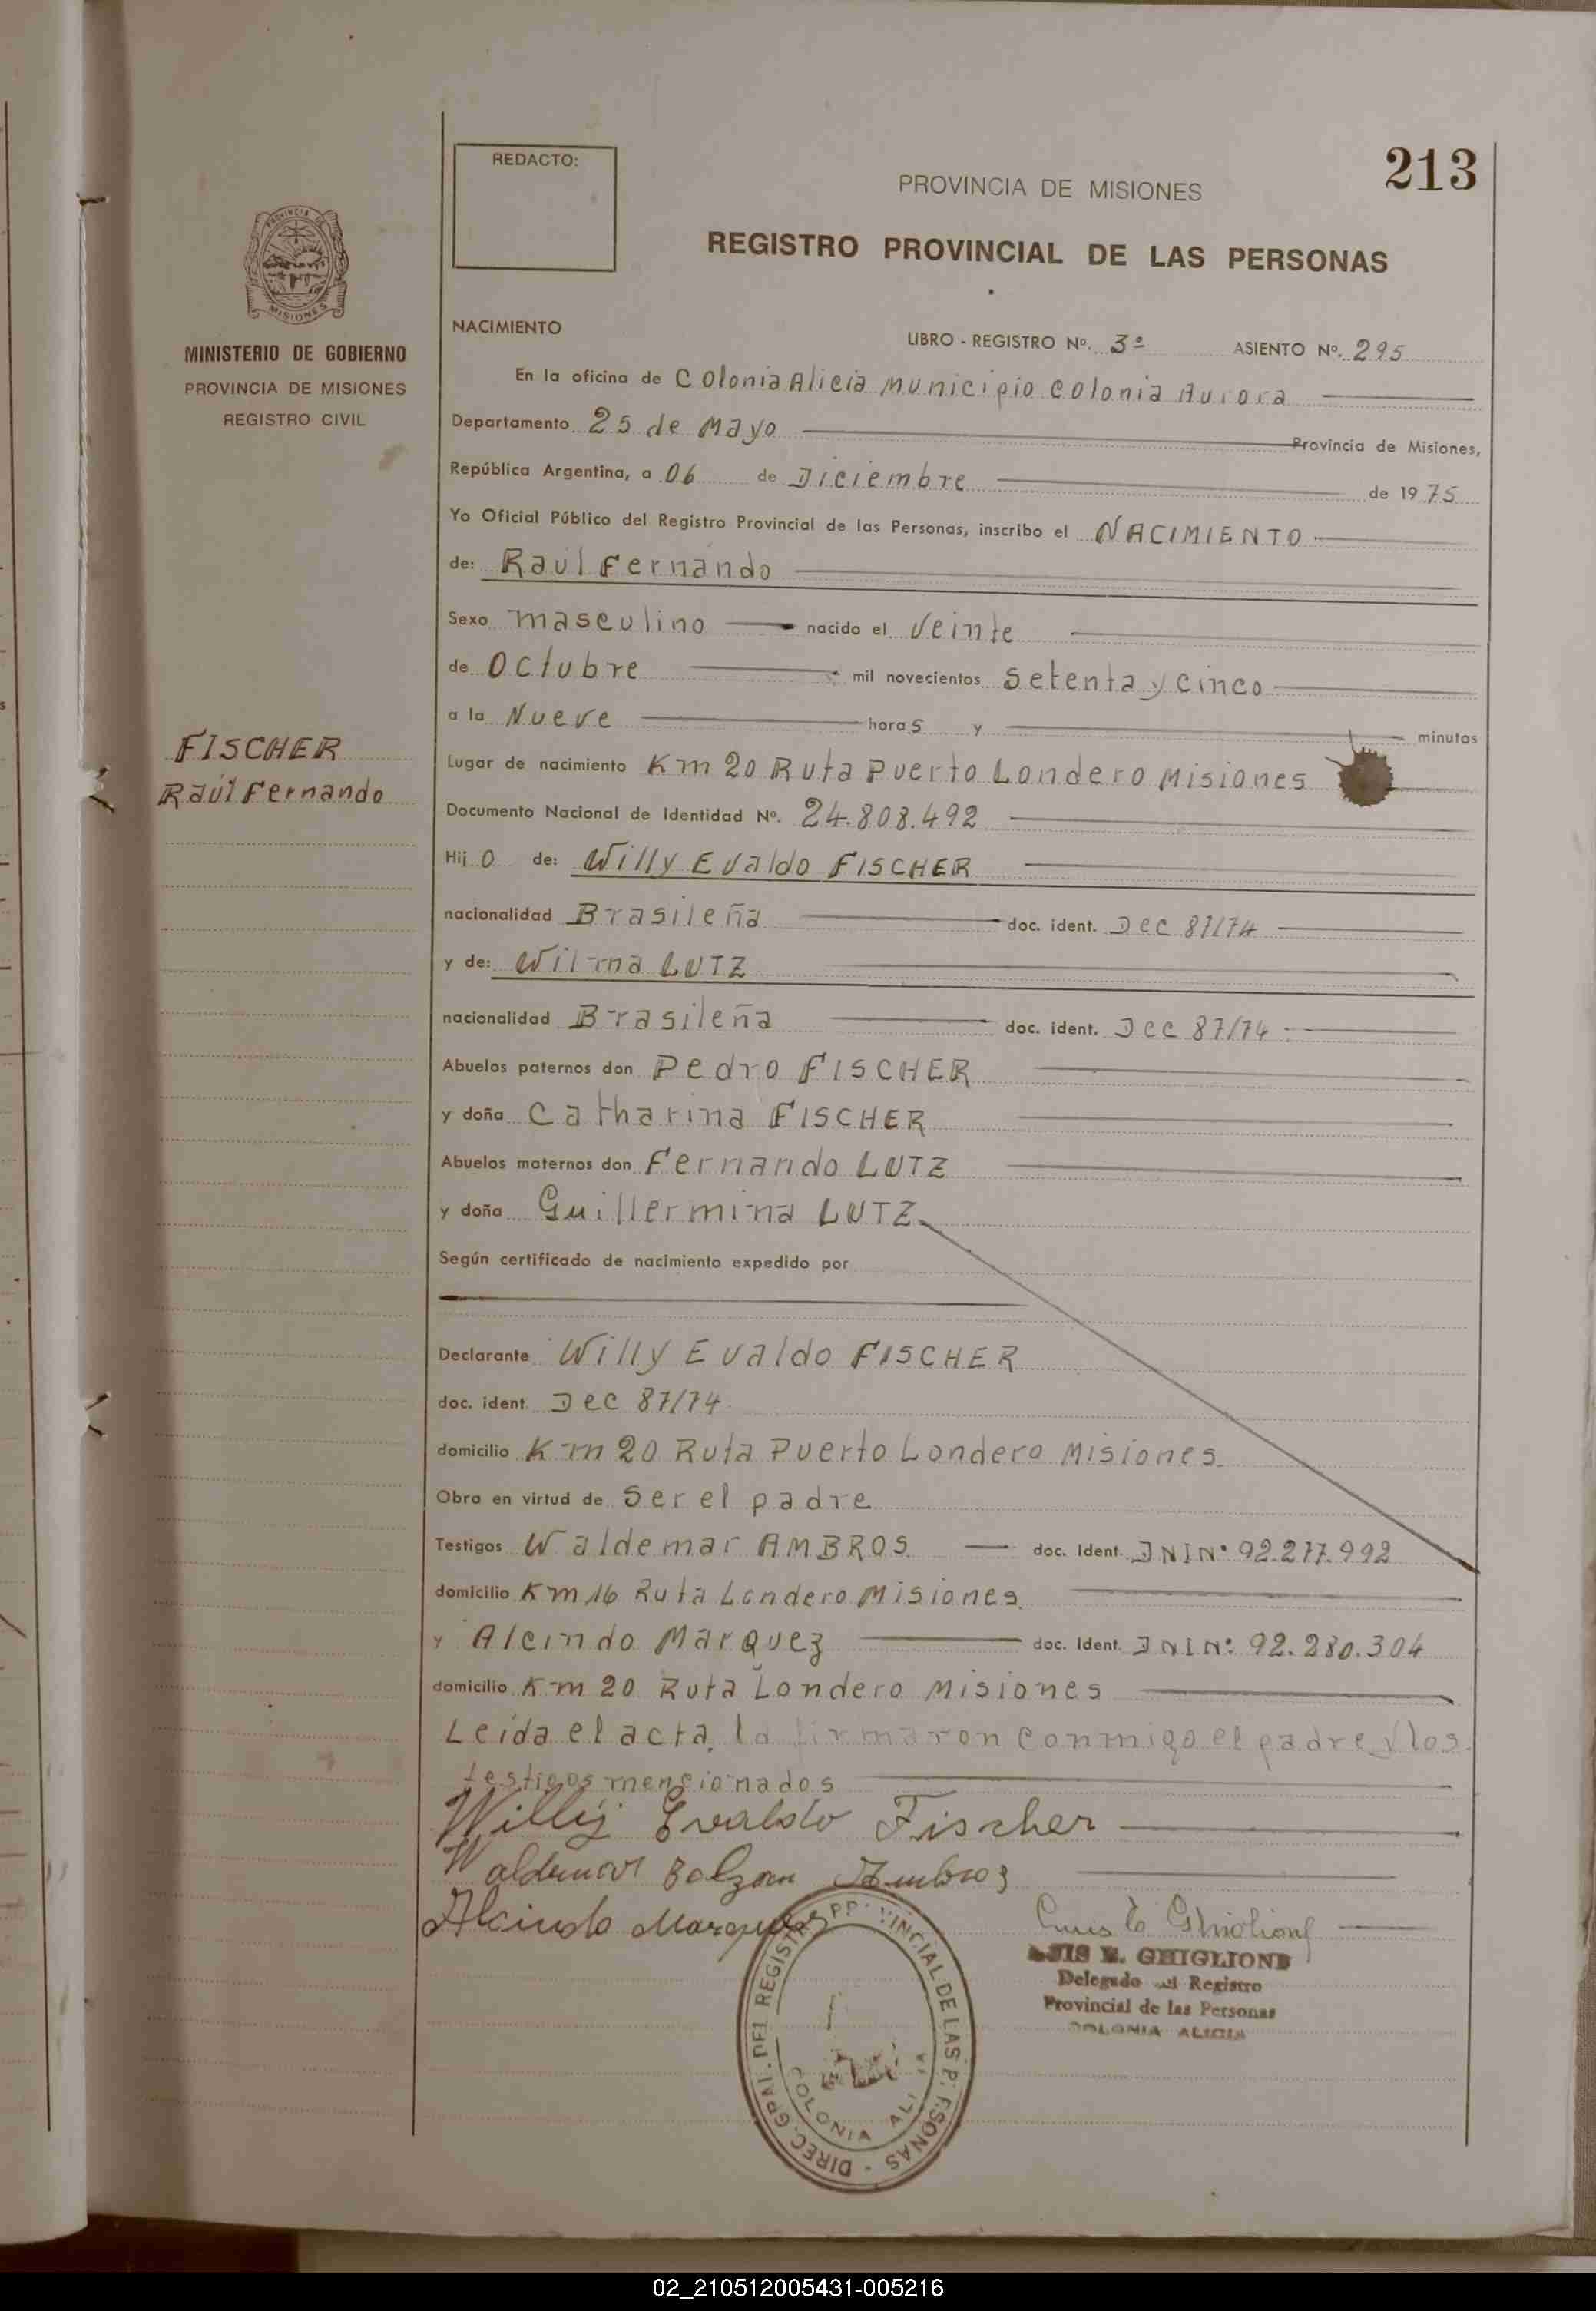 213
REDACTO:
PROVINCIA DE MISIONES
REGISTRO PROVINCIAL DE LAS PERSONAS
MINISTERIO DE GOBIERNO
PROVINCIA DE MISIONES
REGISTRO CIVIL
NACIMIENTO
LIBRO - REGISTRO Nº. 3º ASIENTO Nº. 295
En la oficina de Colonia Alicia Municipio Colonia Aurora
Departamento 25 de Mayo Provincia de Misiones,
República Argentina, a 06 de Diciembre de 1975
Yo Oficial Público del Registro Provincial de las Personas, inscribo el NACIMIENTO
de: Raúl Fernando
Sexo masculino nacido el Veinte
de Octubre mil novecientos Setenta y cinco
a la Nueve horas y minutos
FISCHER
Raúl Fernando
Lugar de nacimiento Km 20 Ruta Puerto Londero Misiones
Documento Nacional de Identidad Nº. 24.808.492
Hijo de: Willy Evaldo FISCHER
nacionalidad Brasileña doc. ident. Dec 87/74
y de: Wilma LUTZ
nacionalidad Brasileña doc. ident. Dec 87/74
Abuelos paternos don Pedro FISCHER
y doña Catharina FISCHER
Abuelos maternos don Fernando LUTZ
y doña Guillermina LUTZ
Según certificado de nacimiento expedido por
Declarante Willy Evaldo FISCHER
doc. ident. Dec 87/74
domicilio Km 20 Ruta Puerto Londero Misiones.
Obra en virtud de Ser el padre
Testigos Waldemar AMBROS. doc. Ident. DNI Nº 92.277.992
domicilio Km 16 Ruta Londero Misiones.
y Alcindo Marquez doc. Ident. DNI Nº: 92.280.304
domicilio Km 20 Ruta Londero Misiones
Leída el acta, la firmaron conmigo el padre y los
testigos mencionados
Willy Evaldo Fischer
Waldemar Ambros
Alcindo Marquez
LUIS E. GHIGLIONE
Delegado del Registro
Provincial de las Personas
COLONIA ALICIA
DIREC. GRAL. DEL REGISTRO PROVINCIAL DE LAS PERSONAS
COLONIA ALICIA
02_210512005431-005216